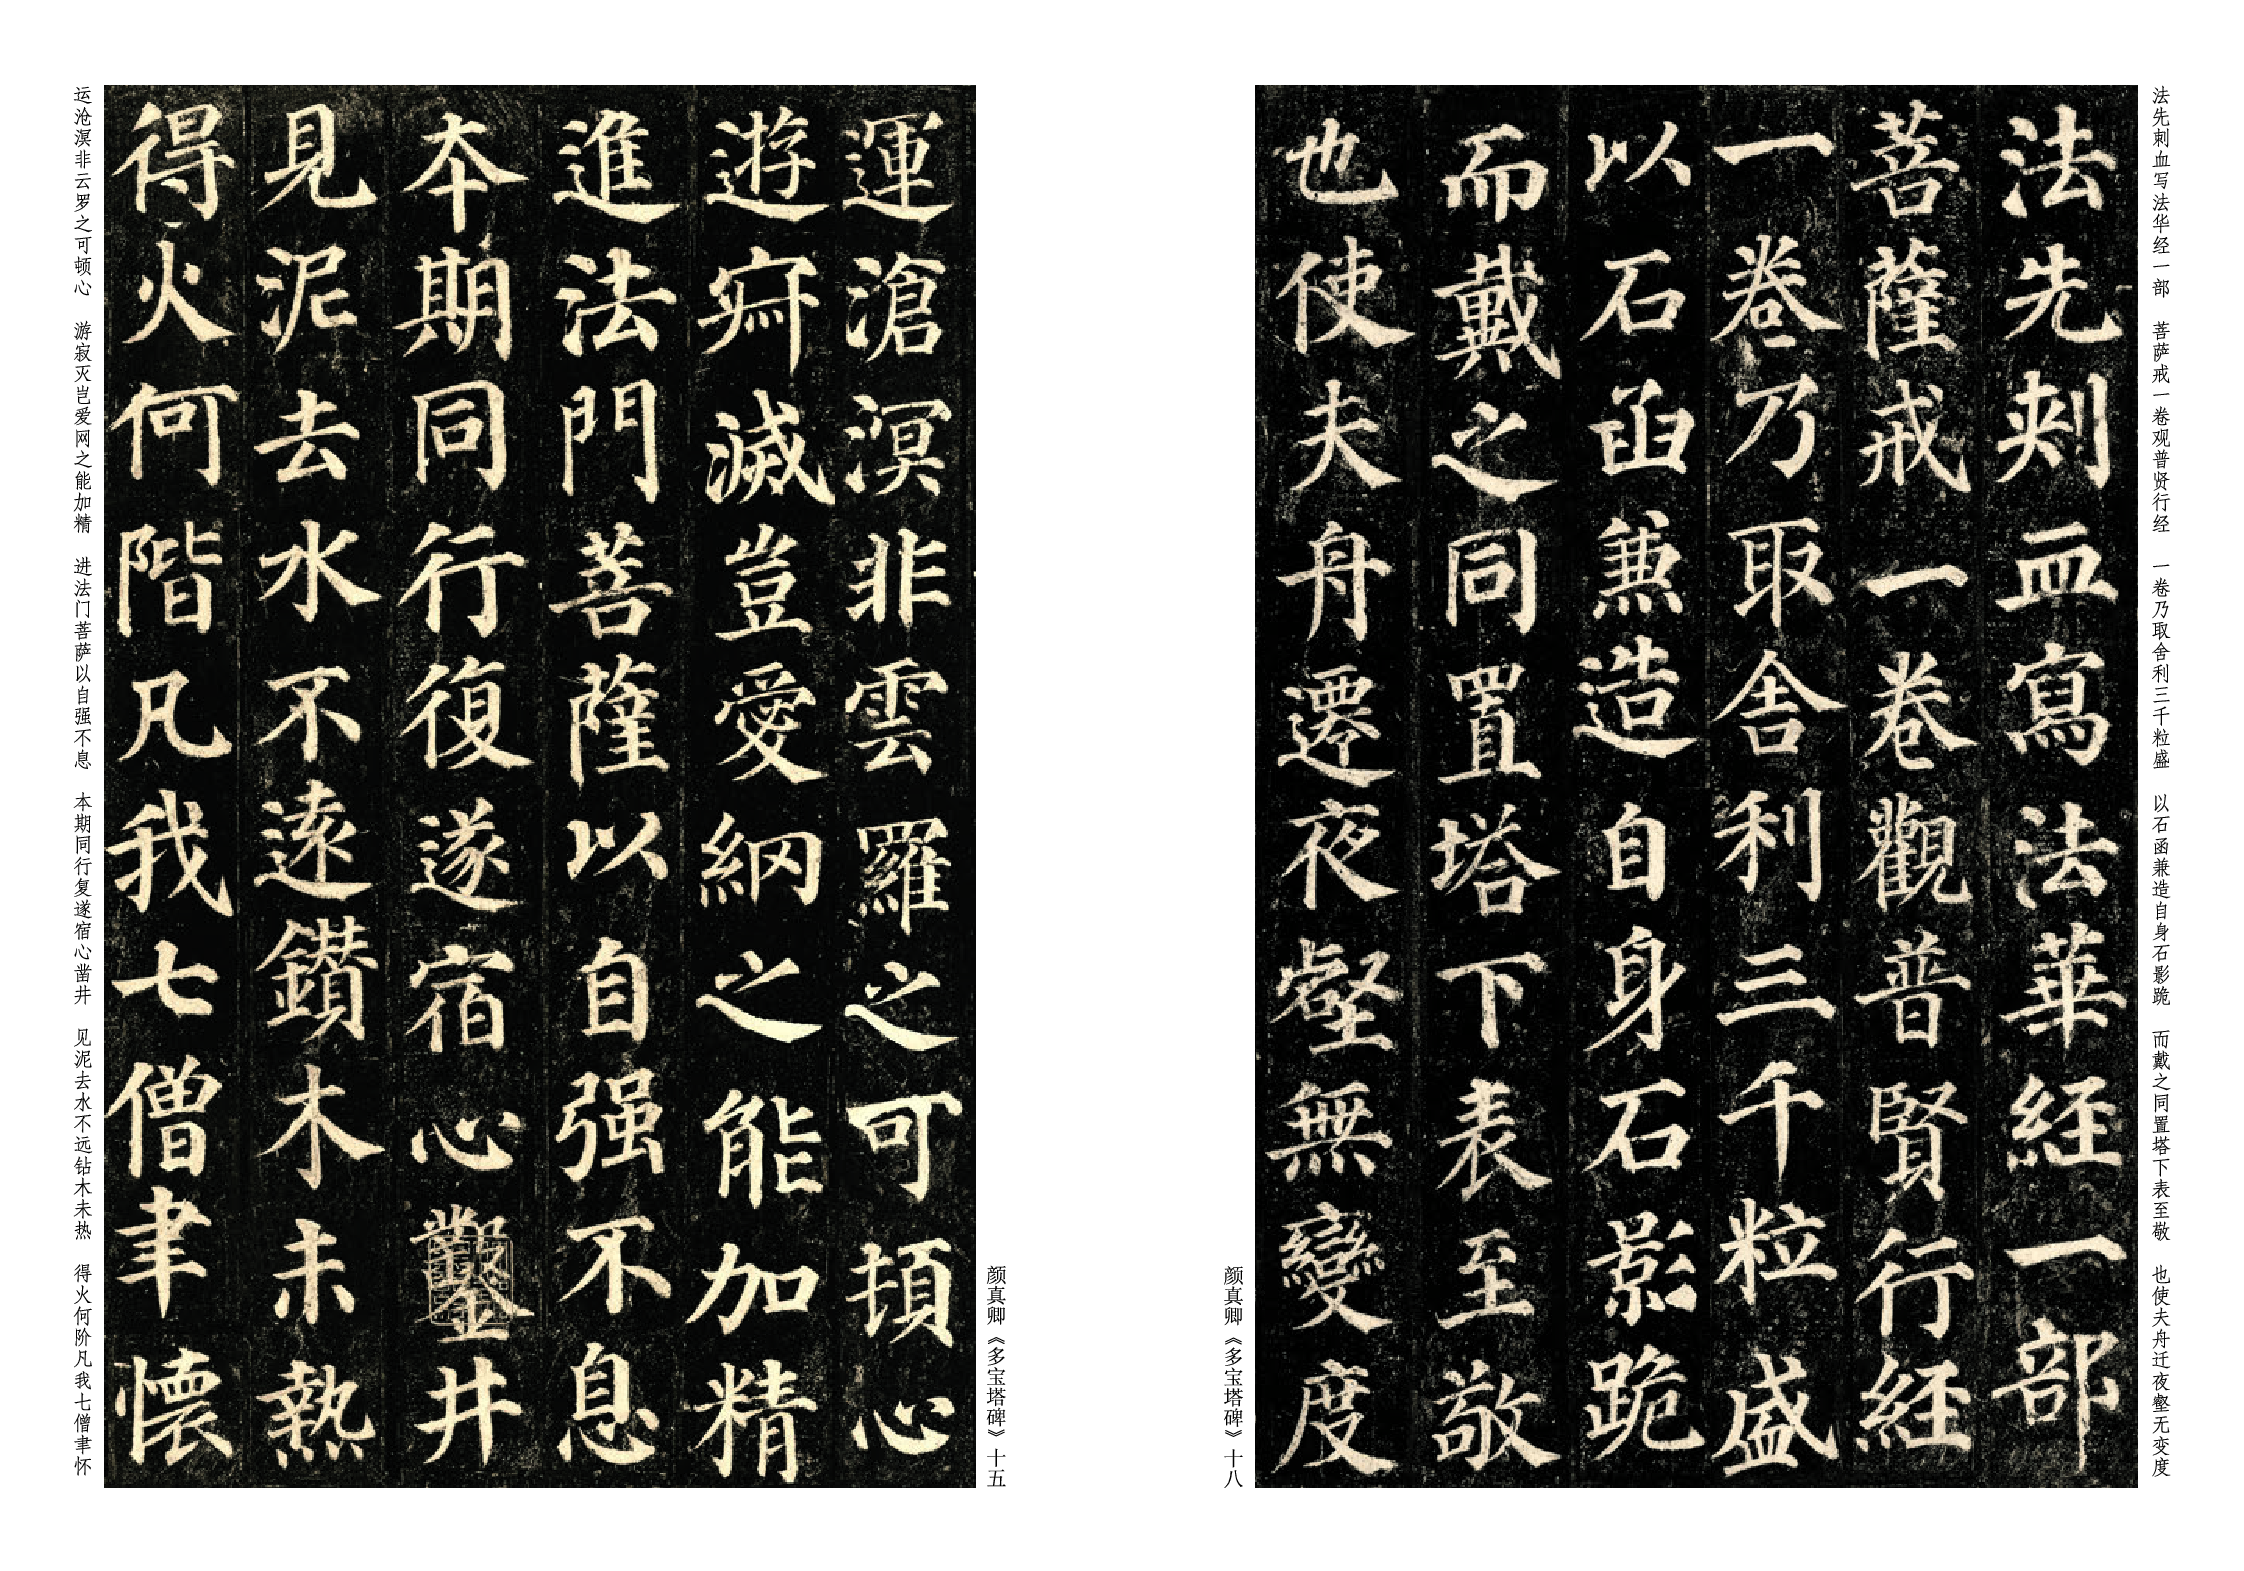 法先刺血写法华经一部　菩萨戒一卷观普贤行经　一卷乃取舍利三千粒盛　以石函兼造自身石影跪　而戴之同置塔下表至敬　也使夫舟迁夜壑无变度
法先刾血寫法華経一部
菩薩戒一卷觀普賢行経
一卷乃取舎利三千粒盛
以石函兼造自身石影跪
而戴之同置塔下表至敬
也使夫舟遷夜壑無變度
颜真卿《多宝塔碑》十八
颜真卿《多宝塔碑》十五
運滄溟非雲羅之可頓心
遊寂滅豈愛網之能加精
進法門菩薩以自强不息
本期同行復遂宿心鑿井
見泥去水不遠鑽木未熱
得火何階凡我七僧聿懷
运沧溟非云罗之可顿心　游寂灭岂爱网之能加精　进法门菩萨以自强不息　本期同行复遂宿心凿井　见泥去水不远钻木未热　得火何阶凡我七僧聿怀